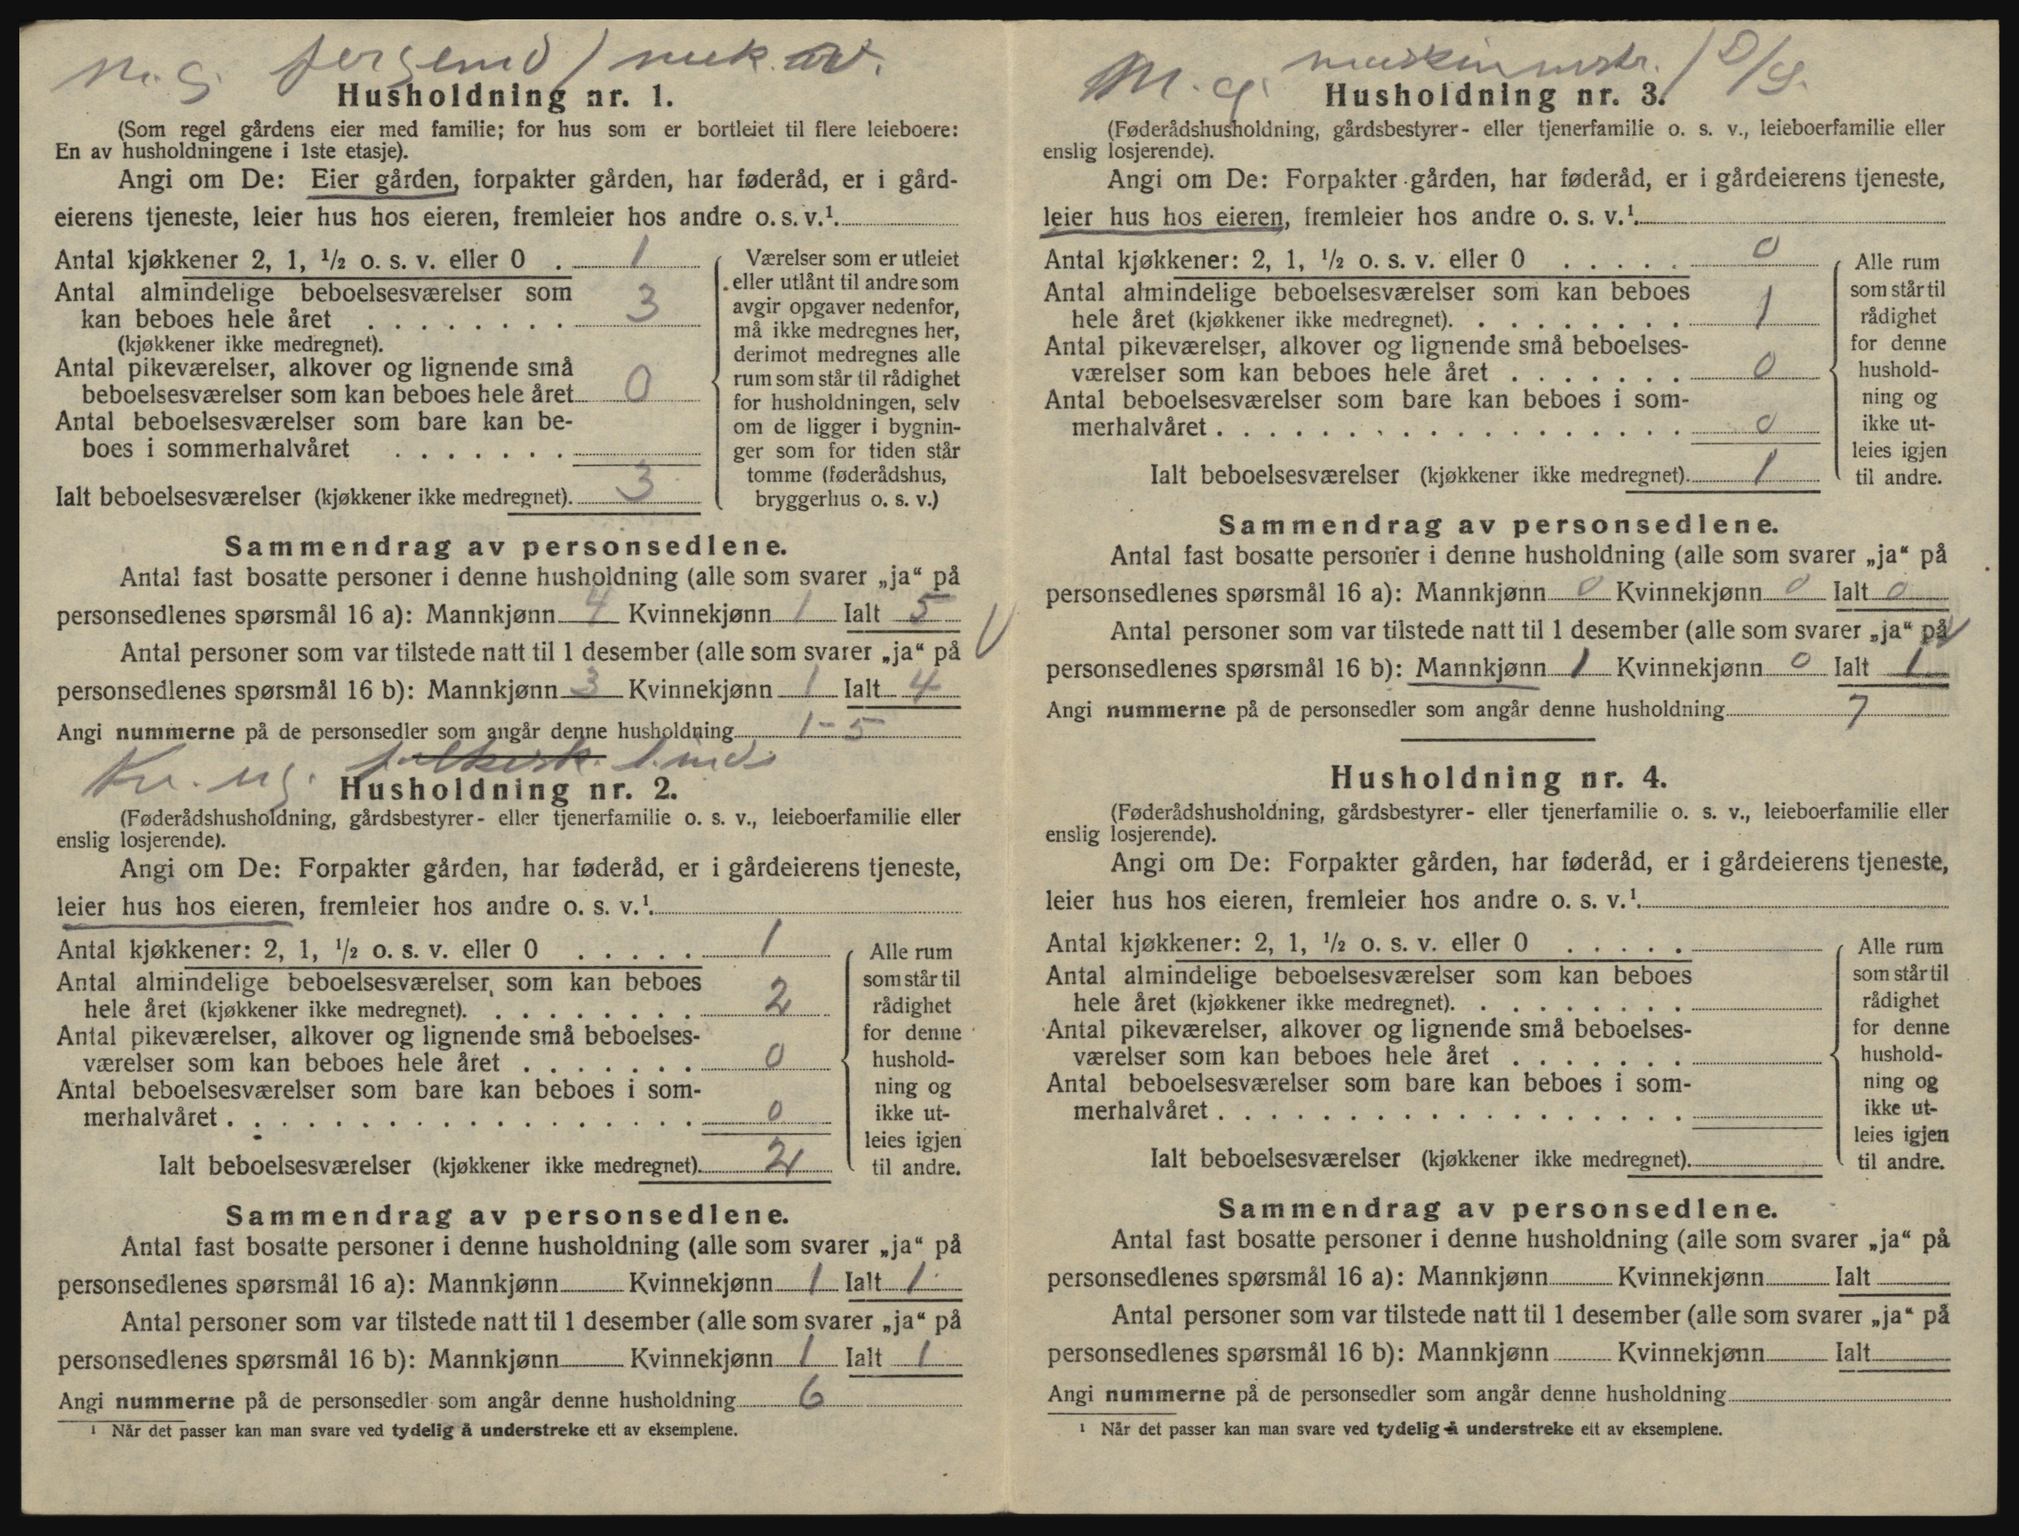 m. g.
Husholdning nr. 1.
(Som regel gårdens eier med familie; for hus som er bortleiet til flere leieboere:
En av husholdningene i 1ste etasje).
Angi om De: Eier gården, forpakter gården, har føderåd, er i gård-
eierens tjeneste, leier hus hos eieren, fremleier hos andre o. s. v.¹.
Antal kjøkkener 2, 1, ½ o. s. v. eller 0 . 1
Antal almindelige beboelsesværelser som
kan beboes hele året . . . . . . . . 3
(kjøkkener ikke medregnet).
Antal pikeværelser, alkover og lignende små
beboelsesværelser som kan beboes hele året 0
Antal beboelsesværelser som bare kan be-
boes i sommerhalvåret . . . . . . .
Ialt beboelsesværelser (kjøkkener ikke medregnet). 3
Værelser som er utleiet
eller utlånt til andre som
avgir opgaver nedenfor,
må ikke medregnes her,
derimot medregnes alle
rum som står til rådighet
for husholdningen, selv
om de ligger i bygnin-
ger som for tiden står
tomme (føderådshus,
bryggerhus o. s. v.)
Sammendrag av personsedlene.
Antal fast bosatte personer i denne husholdning (alle som svarer „ja“ på
personsedlenes spørsmål 16 a): Mannkjønn 4 Kvinnekjønn 1 Ialt 5
Antal personer som var tilstede natt til 1 desember (alle som svarer „ja“ på
personsedlenes spørsmål 16 b): Mannkjønn 3 Kvinnekjønn 1 Ialt 4
Angi nummerne på de personsedler som angår denne husholdning 1-5
Kv. ug.
Husholdning nr. 2.
(Føderådshusholdning, gårdsbestyrer- eller tjenerfamilie o. s. v., leieboerfamilie eller
enslig losjerende).
Angi om De: Forpakter gården, har føderåd, er i gårdeierens tjeneste,
leier hus hos eieren, fremleier hos andre o. s. v.¹.
Antal kjøkkener: 2, 1, ½ o. s. v. eller 0 . . . . . 1
Antal almindelige beboelsesværelser som kan beboes
hele året (kjøkkener ikke medregnet). . . . . . . . . 2
Antal pikeværelser, alkover og lignende små beboelses-
værelser som kan beboes hele året . . . . . . . 0
Antal beboelsesværelser som bare kan beboes i som-
merhalvåret . . . . . . . . . . . . . . . . . . 0
Ialt beboelsesværelser (kjøkkener ikke medregnet). 2
Alle rum
som står til
rådighet
for denne
hushold-
ning og
ikke ut-
leies igjen
til andre.
Sammendrag av personsedlene.
Antal fast bosatte personer i denne husholdning (alle som svarer „ja“ på
personsedlenes spørsmål 16 a): Mannkjønn Kvinnekjønn 1 Ialt 1
Antal personer som var tilstede natt til 1 desember (alle som svarer „ja“ på
personsedlenes spørsmål 16 b): Mannkjønn Kvinnekjønn 1 Ialt 1
Angi nummerne på de personsedler som angår denne husholdning 6
¹ Når det passer kan man svare ved tydelig å understreke ett av eksemplene.
M. g. maskinmstr. / D/S.
Husholdning nr. 3.
(Føderådshusholdning, gårdsbestyrer- eller tjenerfamilie o. s. v., leieboerfamilie eller
enslig losjerende).
Angi om De: Forpakter gården, har føderåd, er i gårdeierens tjeneste,
leier hus hos eieren, fremleier hos andre o. s. v.¹.
Antal kjøkkener: 2, 1, ½ o. s. v. eller 0 . . . . . 0
Antal almindelige beboelsesværelser som kan beboes
hele året (kjøkkener ikke medregnet). . . . . . . . . 1
Antal pikeværelser, alkover og lignende små beboelses-
værelser som kan beboes hele året . . . . . . . 0
Antal beboelsesværelser som bare kan beboes i som-
merhalvåret . . . . . . . . . . . . . . . . . . 0
Ialt beboelsesværelser (kjøkkener ikke medregnet). 1
Alle rum
som står til
rådighet
for denne
hushold-
ning og
ikke ut-
leies igjen
til andre.
Sammendrag av personsedlene.
Antal fast bosatte personer i denne husholdning (alle som svarer „ja“ på
personsedlenes spørsmål 16 a): Mannkjønn 0 Kvinnekjønn 0 Ialt 0
Antal personer som var tilstede natt til 1 desember (alle som svarer „ja“ på
personsedlenes spørsmål 16 b): Mannkjønn 1 Kvinnekjønn 0 Ialt 1
Angi nummerne på de personsedler som angår denne husholdning 7
Husholdning nr. 4.
(Føderådshusholdning, gårdsbestyrer- eller tjenerfamilie o. s. v., leieboerfamilie eller
enslig losjerende).
Angi om De: Forpakter gården, har føderåd, er i gårdeierens tjeneste,
leier hus hos eieren, fremleier hos andre o. s. v.¹.
Antal kjøkkener: 2, 1, ½ o. s. v. eller 0 . . . . .
Antal almindelige beboelsesværelser som kan beboes
hele året (kjøkkener ikke medregnet). . . . . . . . .
Antal pikeværelser, alkover og lignende små beboelses-
værelser som kan beboes hele året . . . . . . .
Antal beboelsesværelser som bare kan beboes i som-
merhalvåret . . . . . . . . . . . . . . . . . .
Ialt beboelsesværelser (kjøkkener ikke medregnet).
Alle rum
som står til
rådighet
for denne
hushold-
ning og
ikke ut-
leies igjen
til andre.
Sammendrag av personsedlene.
Antal fast bosatte personer i denne husholdning (alle som svarer „ja“ på
personsedlenes spørsmål 16 a): Mannkjønn Kvinnekjønn Ialt
Antal personer som var tilstede natt til 1 desember (alle som svarer „ja“ på
personsedlenes spørsmål 16 b): Mannkjønn Kvinnekjønn Ialt
Angi nummerne på de personsedler som angår denne husholdning
¹ Når det passer kan man svare ved tydelig å understreke ett av eksemplene.